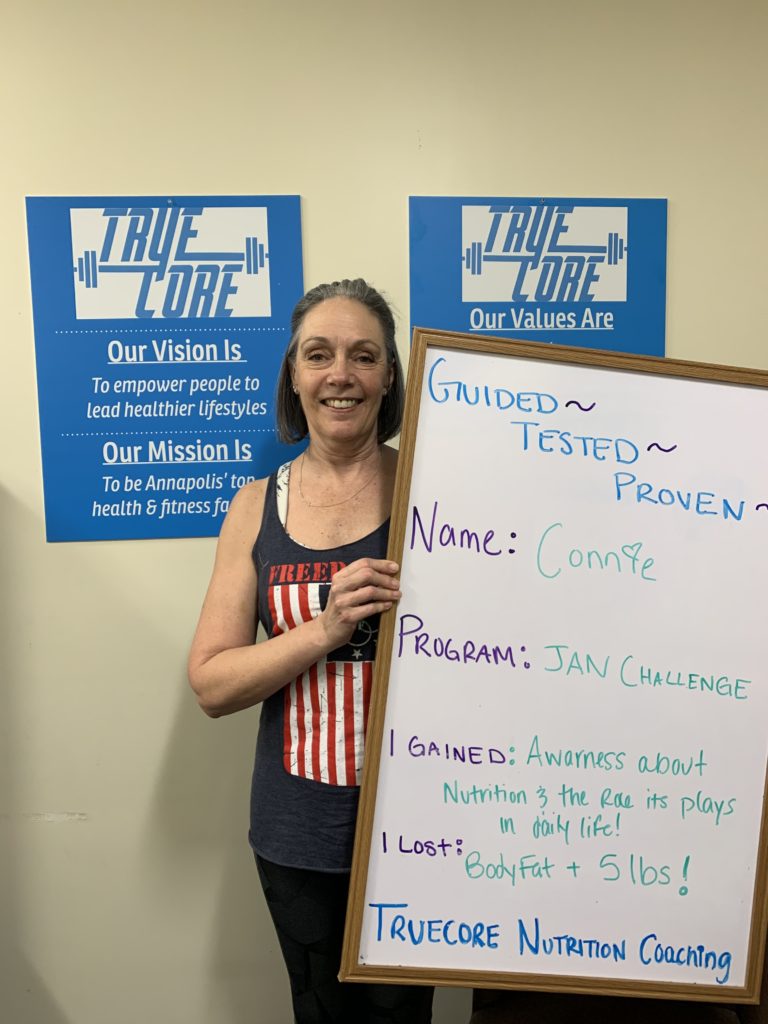 TRUE
CORE
Our Vision Is
To empower people to
lead healthier lifestyles
Our Mission Is
To be Annapolis' top
health & fitness fa
TRUE
CORE
Our Values Are
FREED
GUIDED~
TESTED~
PROVEN~
Name: Connie
PROGRAM: JAN CHALLENGE
I GAINED: Awarness about
Nutrition & the Roe its plays
in daily life!
I LOST:
BodyFat + 5 lbs!
TRUECORE NUTRITION Coaching